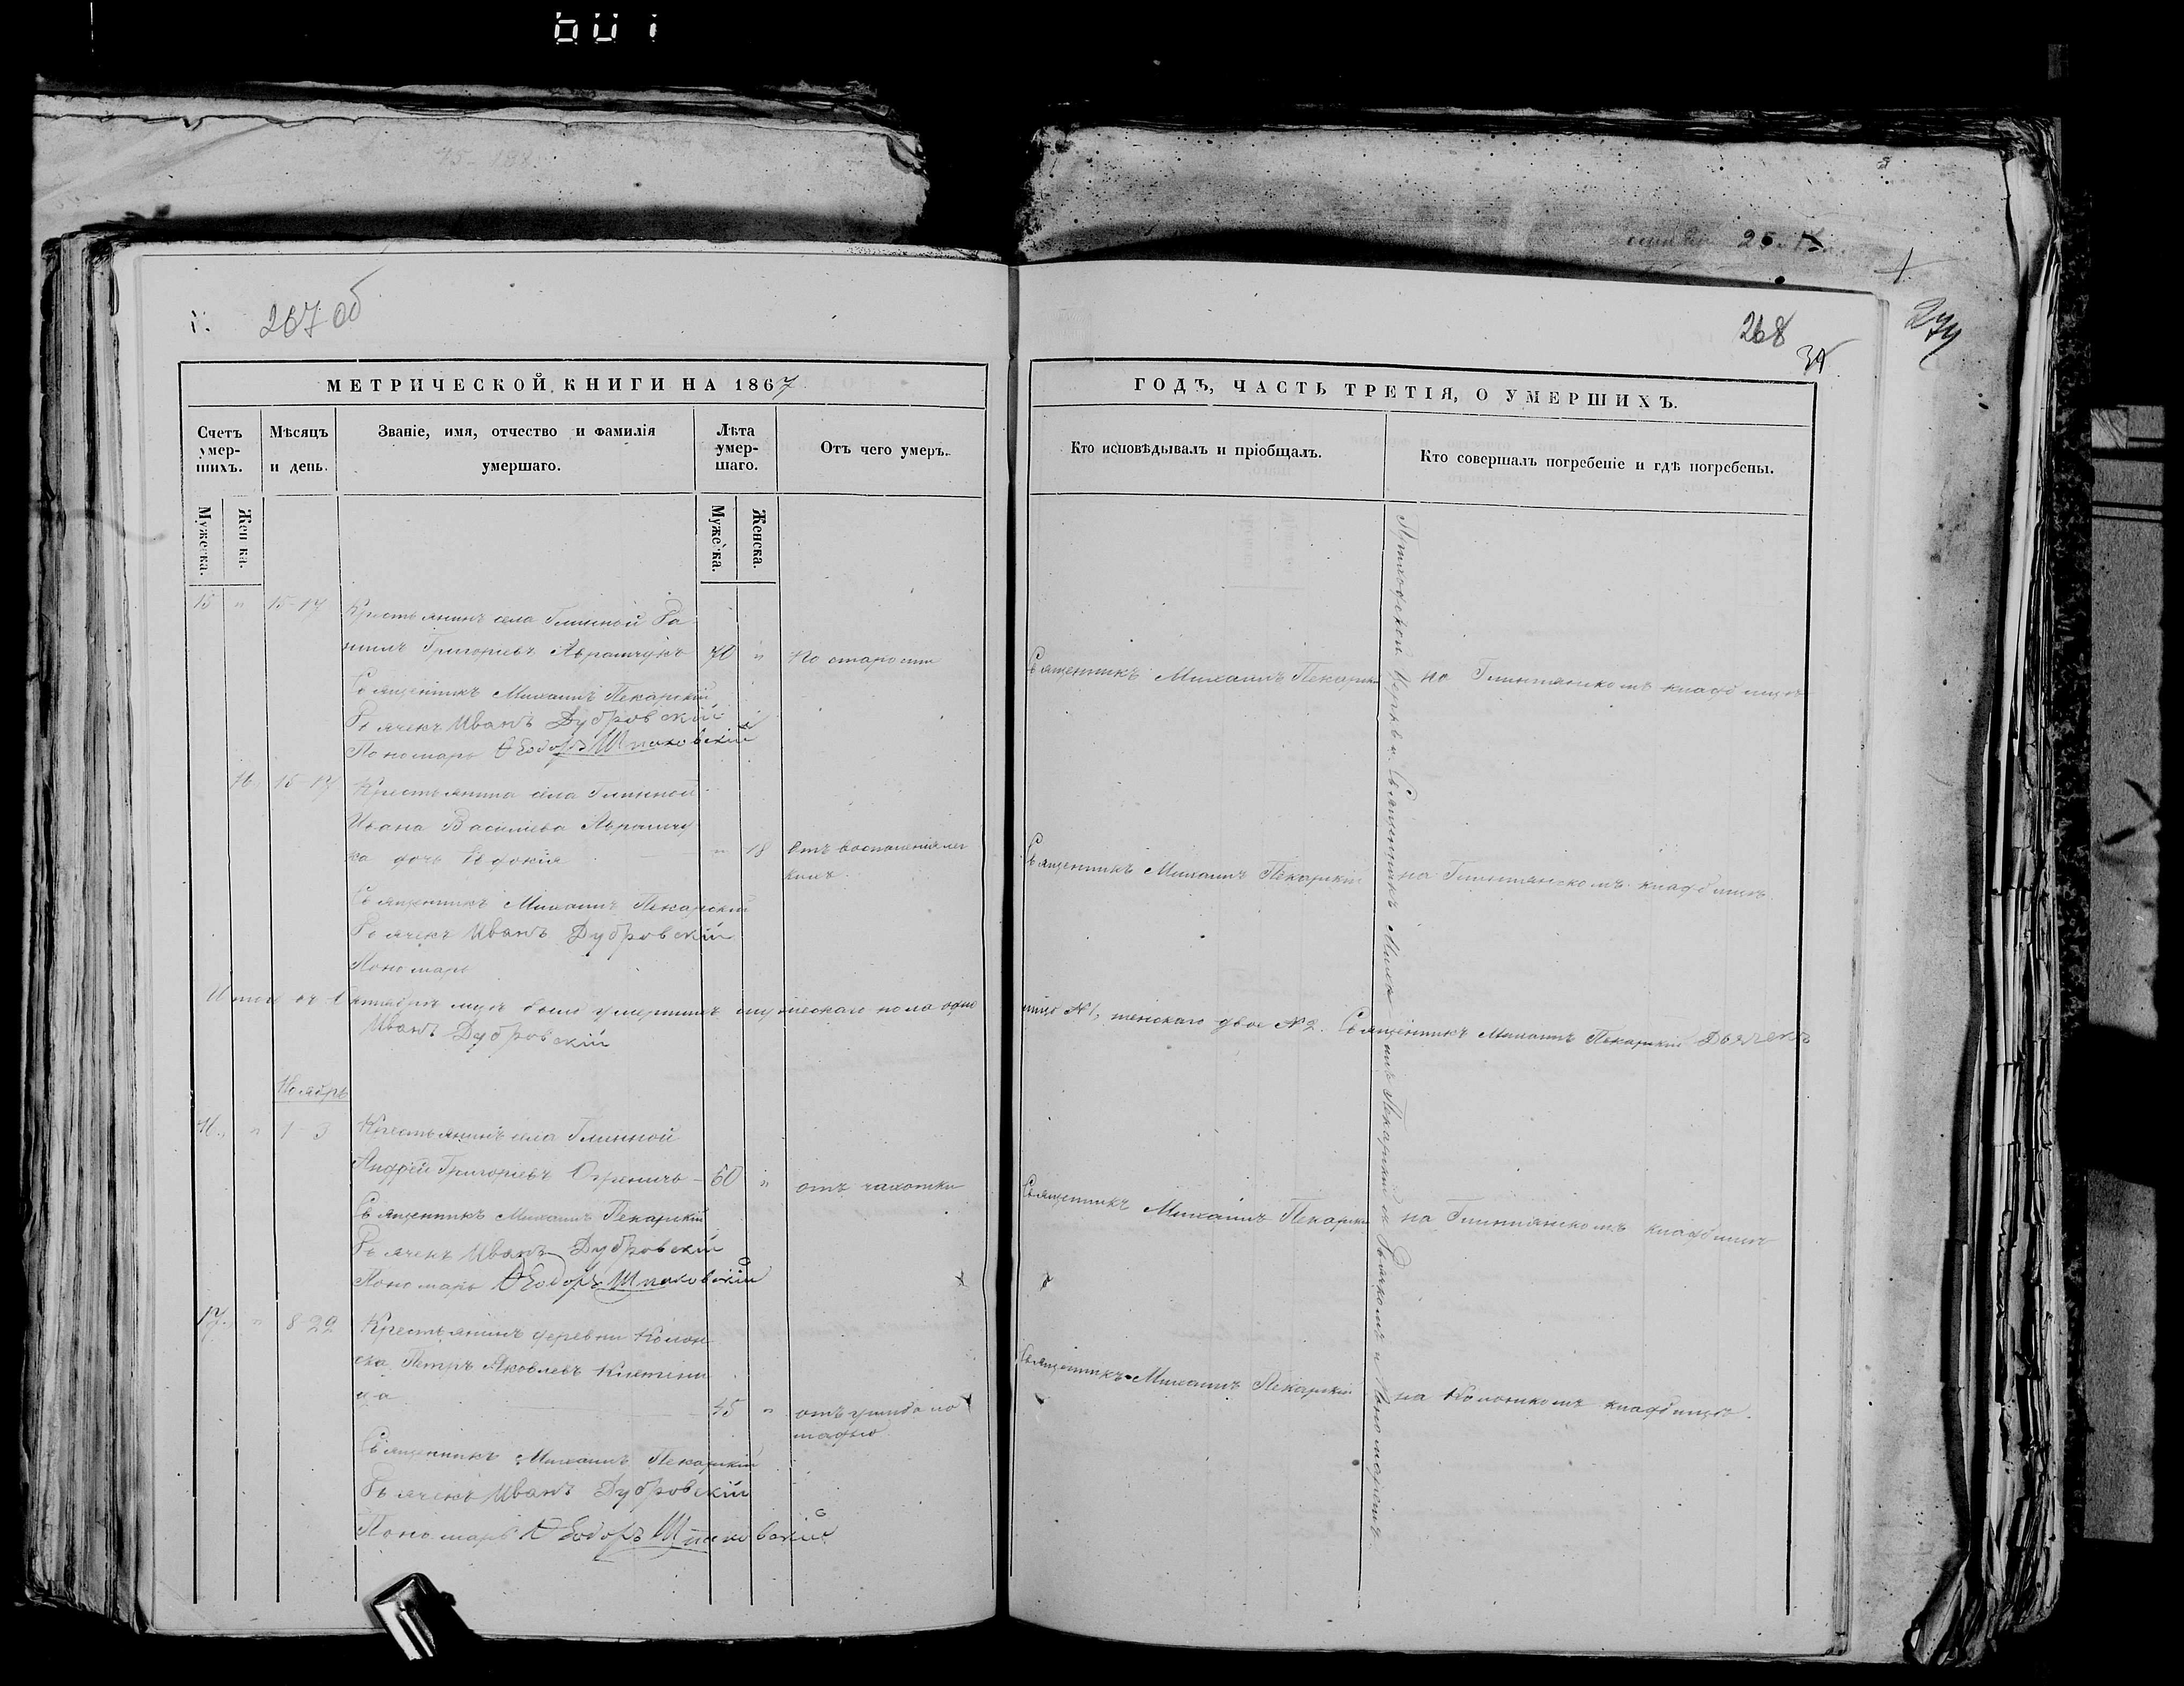 267 об
268
МЕТРИЧЕСКОЙ КНИГИ НА 1867
ГОДЪ, ЧАСТЬ ТРЕТІЯ, О УМЕРШИХЪ.
Счетъ умер-шихъ.
Мѣсяцъ и день.
Званіе, имя, отчество и фамилія умершаго.
Лѣта умер-шаго.
Отъ чего умеръ.
Кто исповѣдывалъ и пріобщалъ.
Кто совершалъ погребеніе и гдѣ погребены.
Мужеска.
Женска.
Мужеска.
Женска.
15 " 15-17 Крестьянинъ села Глинной Да
ниилъ Григорьевъ Аврамчукъ 70 " По старости
Священникъ Михаилъ Пекарскій на кладбищѣ
Священникъ Михаилъ Пекарскій
Дьячекъ Иванъ Дубровскій
Пономарь Ѳеодоръ Шпаковскій
15-17 Крестьянина села Глинной
Ивана Василіева Аврамчу
ка дочь Евдокія " 18 Отъ воспаленія лег
кихъ.
Священникъ Михаилъ Пекарскій на кладбищѣ
Священникъ Михаилъ Пекарскій
Дьячекъ Иванъ Дубровскій
Пономарь
Итого въ Октябрѣ м-цѣ было умершихъ мужескаго пола одно
лицо №1, женскаго двое №2. Священникъ Михаилъ Пекарскій Дьячекъ
Иванъ Дубровскій
Ноябрь
" 1-3 Крестьянинъ села Глинной
Андрей Григоріевъ 60 " отъ чахотки
Священникъ Михаилъ Пекарскій на кладбищѣ
Священникъ Михаилъ Пекарскій
Дьячекъ Иванъ Дубровскій
Пономарь Ѳеодоръ Шпаковскій
17. " 8-22 Крестьянинъ деревни Колон
ска Петръ Яковлевъ
45 " отъ ушиба ло
шадью
Священникъ Михаилъ Пекарскій на Колонскомъ кладбищѣ.
Священникъ Михаилъ Пекарскій
Дьячекъ Иванъ Дубровскій
Пономарь Ѳеодоръ Шпаковскій
Приходской Церкви Священникъ Михаилъ Пекарскій съ Дьячкомъ и Пономаремъ.